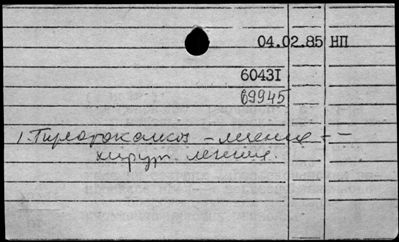 04.02.85 НП
60431
69945
1. Тиреотоксикоз – лечение – –
хирург. лечение.